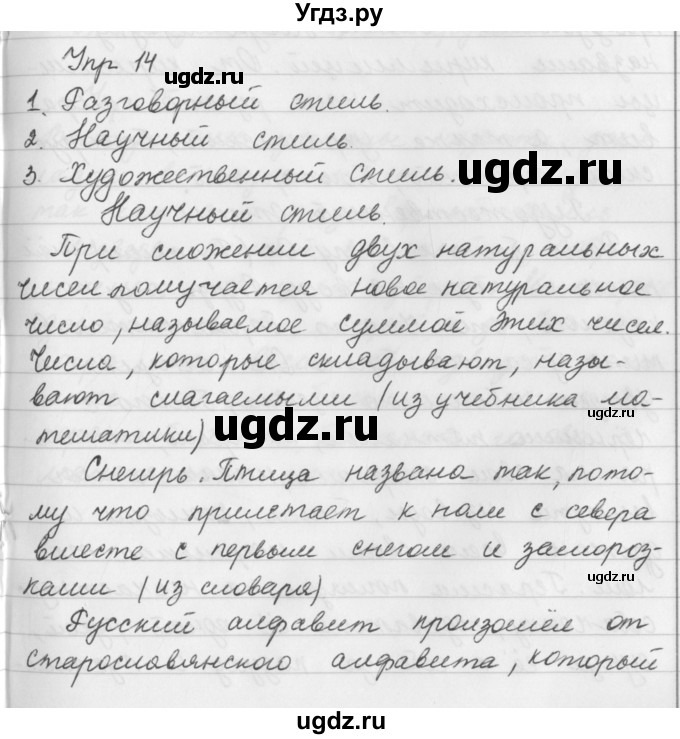 Угдз.ру
Упр 14
ugdz.ru
1. Разговорный стиль.
2. Научный стиль.
ugdz.ru
3. Художественный стиль.
ugdz.ru
Научный стиль.
При сложении двух натуральных
чисел получается новое натуральное
число, называемое суммой этих чисел.
ugdz.ru
Числа, которые складывают, назы-
вают слагаемыми (из учебника ма-
ugdz.ru
ugdz.ru
тематики)
Снегирь. Птица названа так, пото-
му что прилетает к нам с севера
ugdz.ru
вместе с первым снегом и замороз-
ками (из словаря)
ugdz.ru
Русский алфавит произошёл от
старославянского алфавита, который
ugdz.ru
ugdz.ru